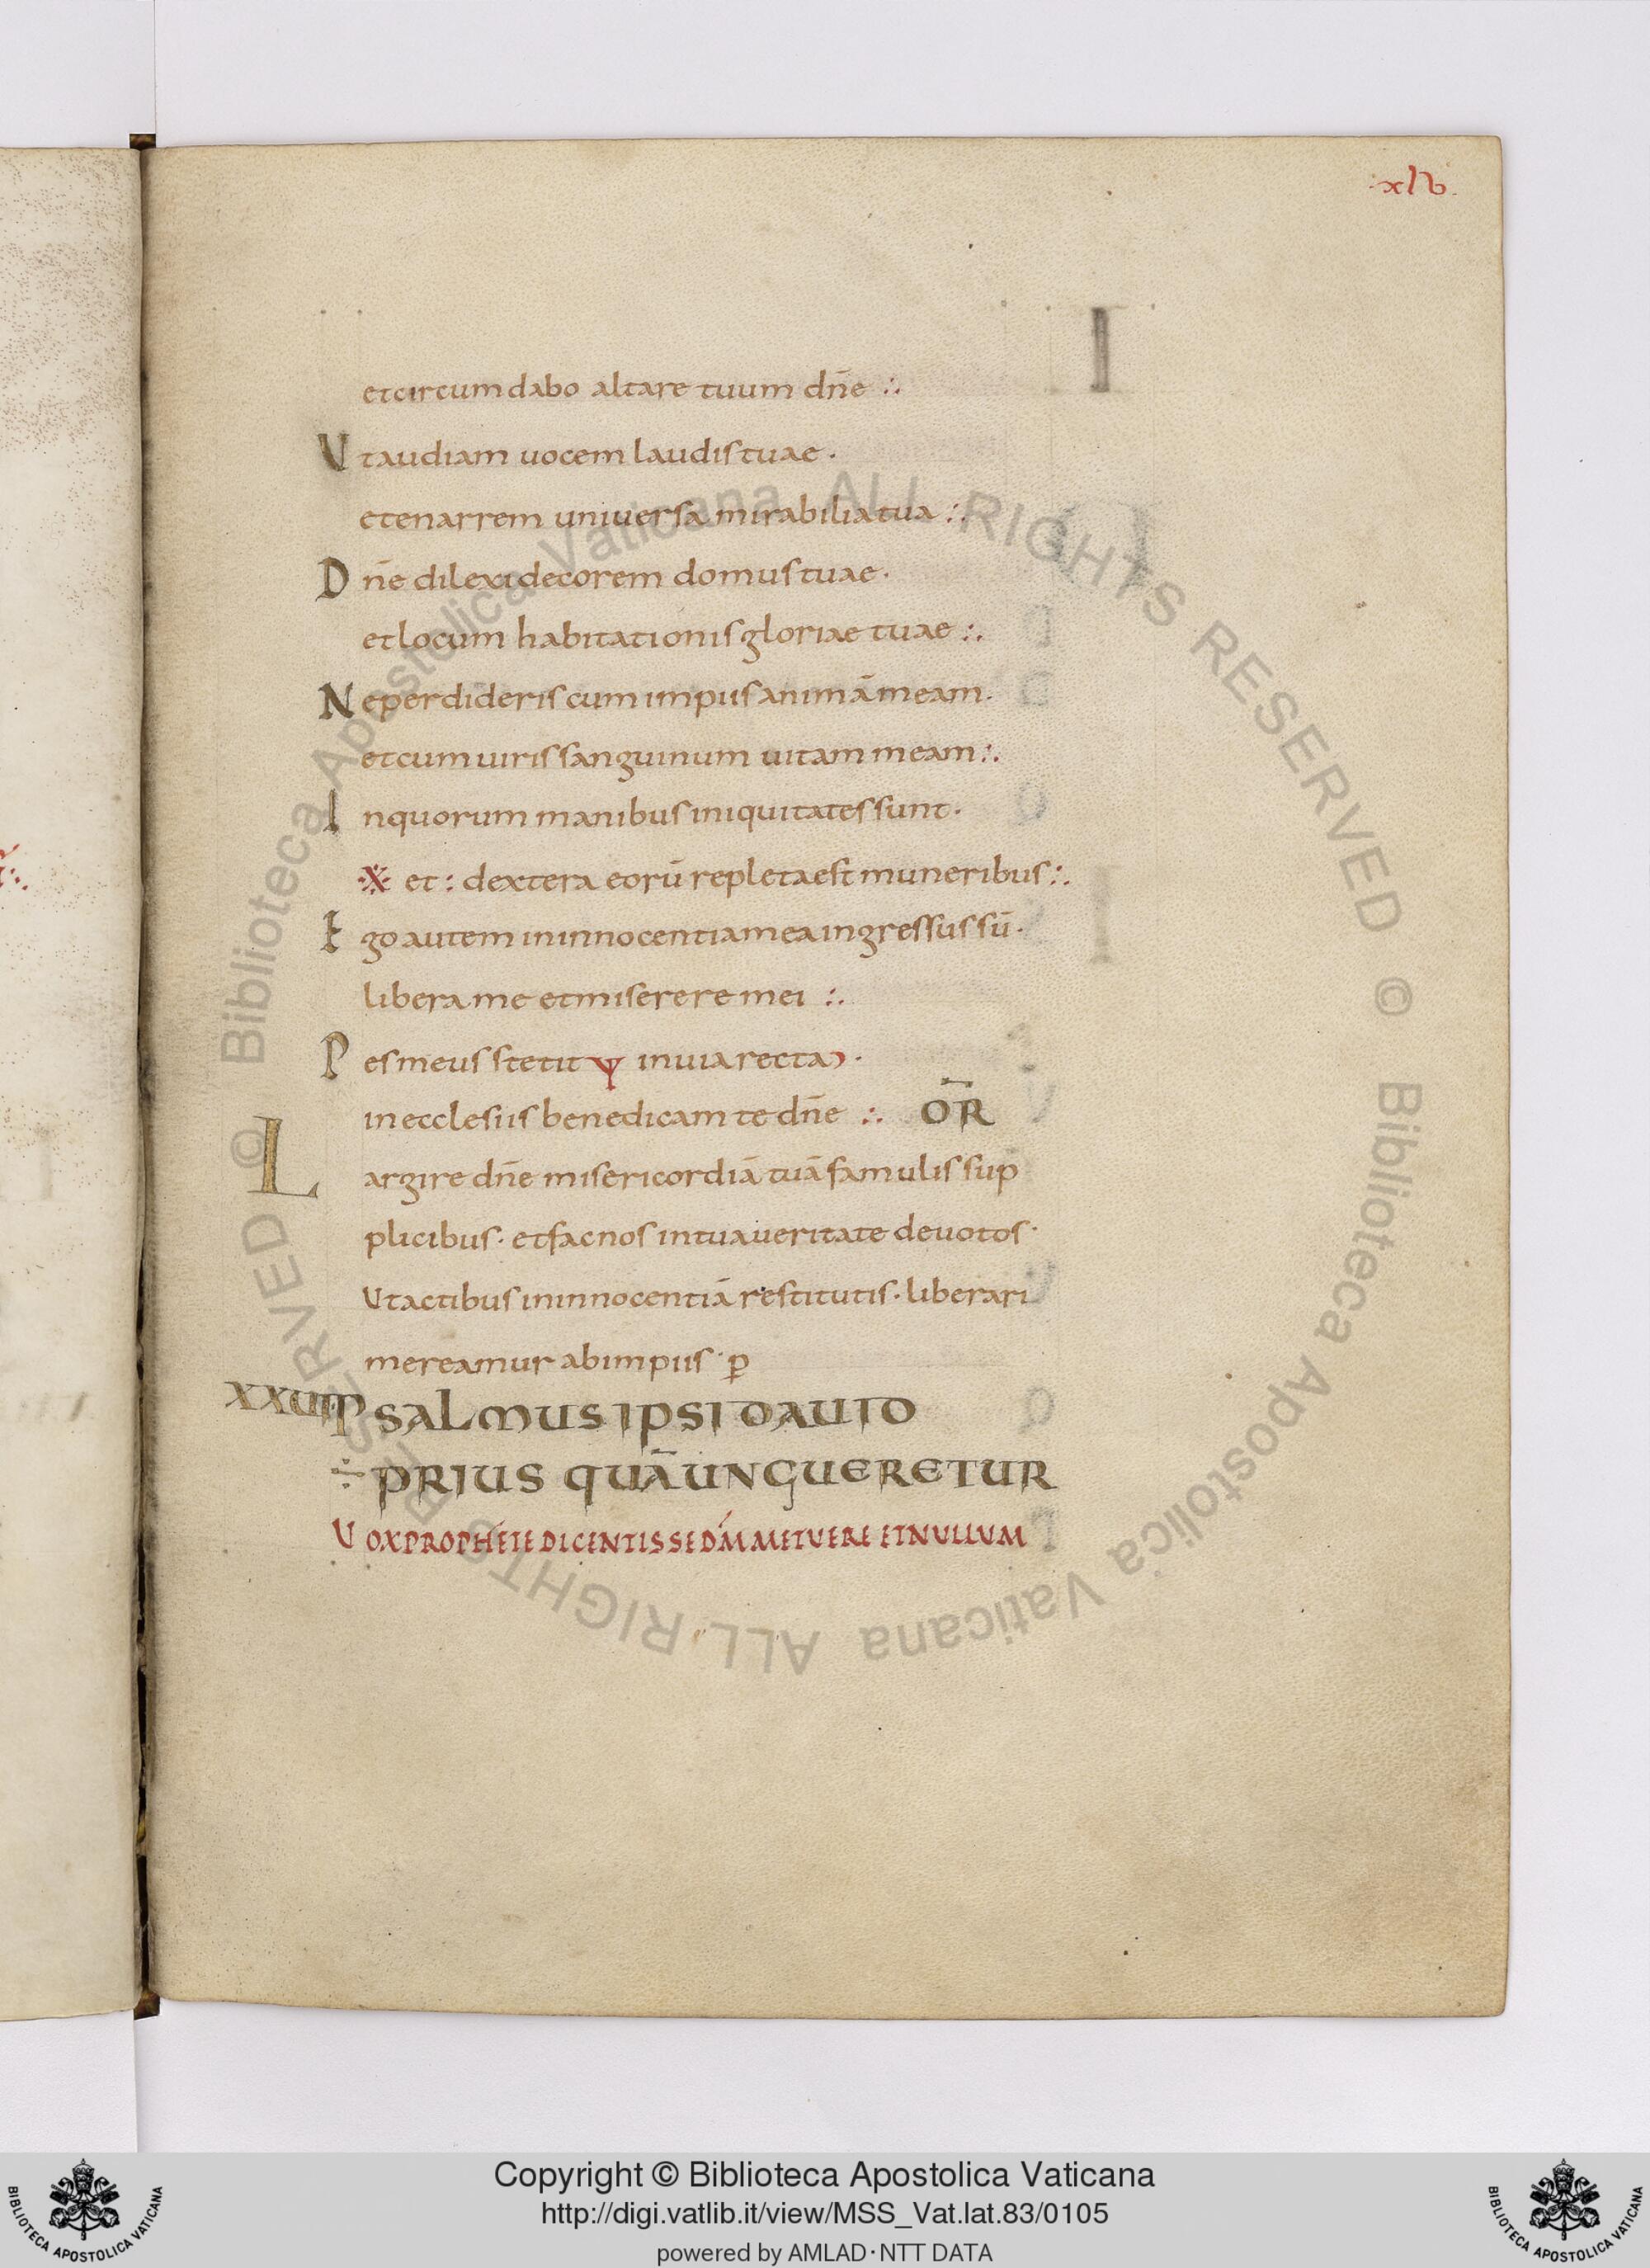 ·xlv·
et circumdabo altare tuum dñe :·
Ut audiam uocem laudis tuae ·
et enarrem uniuersa mirabilia tua :·
Dñe dilexi decorem domus tuae ·
et locum habitationis gloriae tuae :·
Ne perdideris cum impiis animā meam ·
et cum uiris sanguinum uitam meam :·
In quorum manibus iniquitates sunt ·
※ et : dextera eorū repleta est muneribus :·
Ego autem in innocentia mea ingressus sū ·
libera me et miserere mei :·
Pes meus stetit in uia recta ·
in ecclesiis benedicam te dñe :· OR̄
Largire dñe misericordiā tuā famulis sup
plicibus · et fac nos in tua ueritate deuotos ·
Ut actibus in innocentiā restitutis · liberari
mereamur ab impiis · p
PSALMUS IPSI DAUID
÷ PRIUS QUĀ UNGUERETUR
UOX PROPHETE DICENTIS SE DM̄ METUERE ET NULLUM
Biblioteca Apostolica Vaticana ALL RIGHTS RESERVED © Biblioteca Apostolica Vaticana ALL RIGHTS RESERVED ©
Copyright © Biblioteca Apostolica Vaticana
http://digi.vatlib.it/view/MSS_Vat.lat.83/0105
powered by AMLAD · NTT DATA
BIBLIOTECA APOSTOLICA VATICANA
BIBLIOTECA APOSTOLICA VATICANA